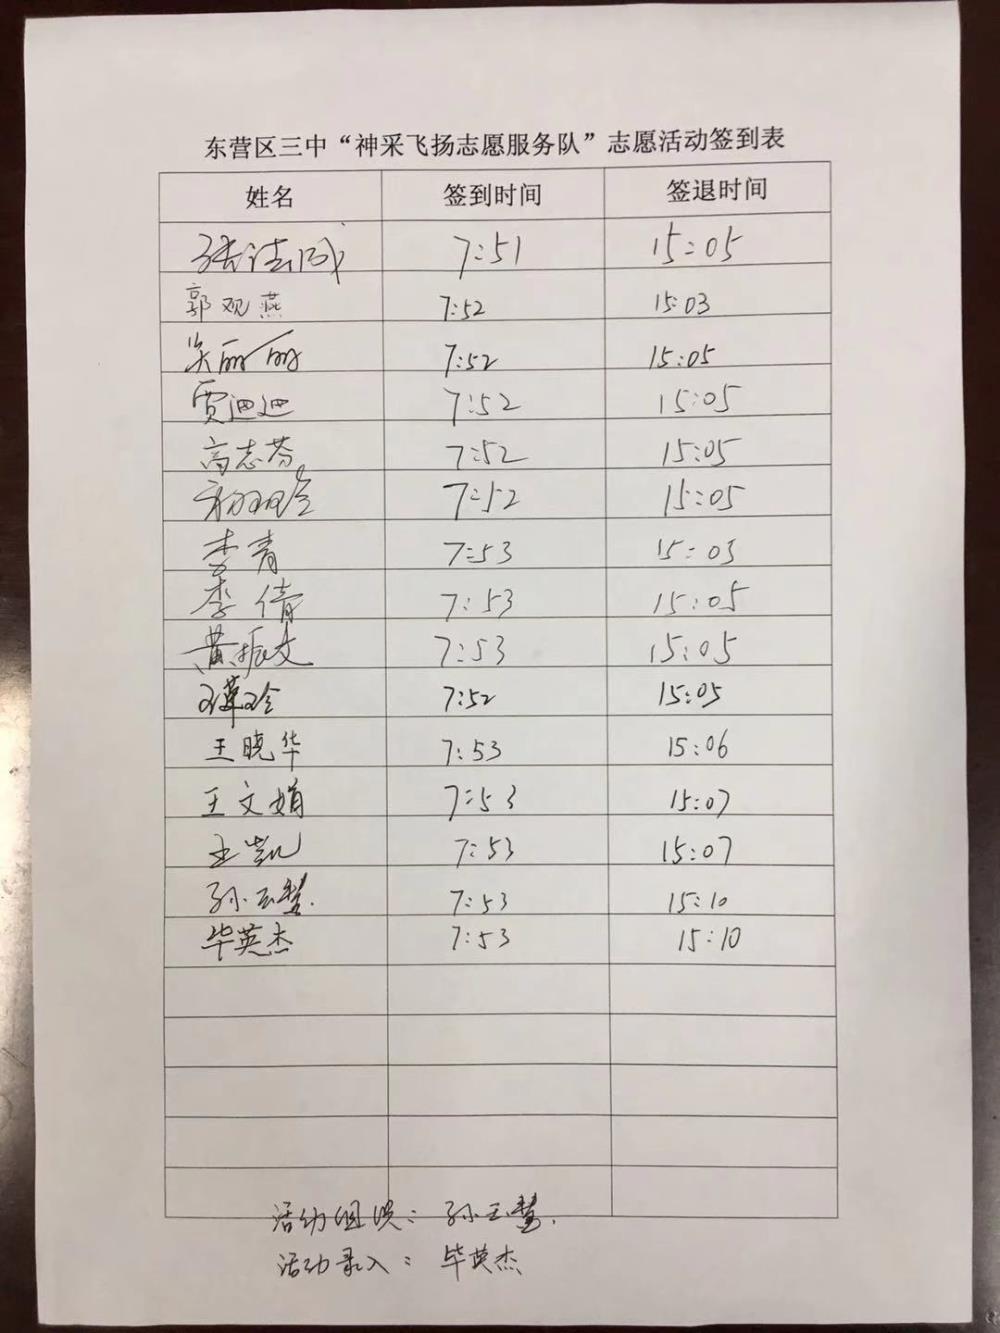 东营区三中“神采飞扬志愿服务队”志愿活动签到表
姓名 签到时间 签退时间
张洁成 7:51 15:05
郭观燕 7:52 15:03
吴丽丽 7:52 15:05
贾迪迪 7:52 15:05
高志芬 7:52 15:05
7:52 15:05
李青 7:53 15:03
李倩 7:53 15:05
黄振文 7:53 15:05
7:52 15:05
王晓华 7:53 15:06
王文娟 7:53 15:07
王凯 7:53 15:07
孙玉慧 7:53 15:10
毕英杰 7:53 15:10
活动组织：孙玉慧
活动录入：毕英杰